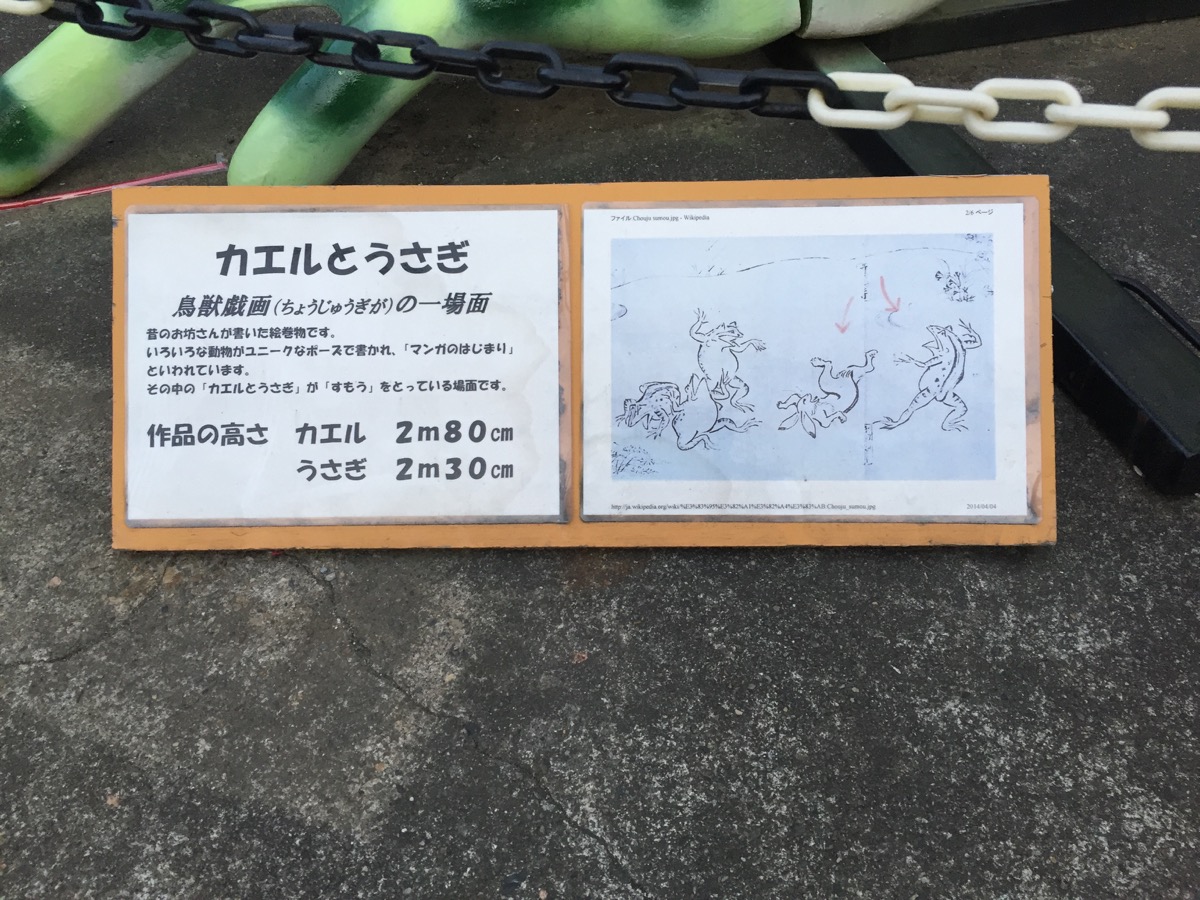 カエルとうさぎ
鳥獣戯画(ちょうじゅうぎが)の一場面
昔のお坊さんが書いた絵巻物です。
いろいろな動物がユニークなポーズで書かれ、「マンガのはじまり」
といわれています。
その中の「カエルとうさぎ」が「すもう」をとっている場面です。
作品の高さ カエル 2m80cm
うさぎ 2m30cm
ファイル:Chouju sumou.jpg - Wikipedia 2/6 ページ
http://ja.wikipedia.org/wiki/%E3%83%95%E3%82%A1%E3%82%A4%E3%83%AB:Chouju_sumou.jpg 2014/04/04